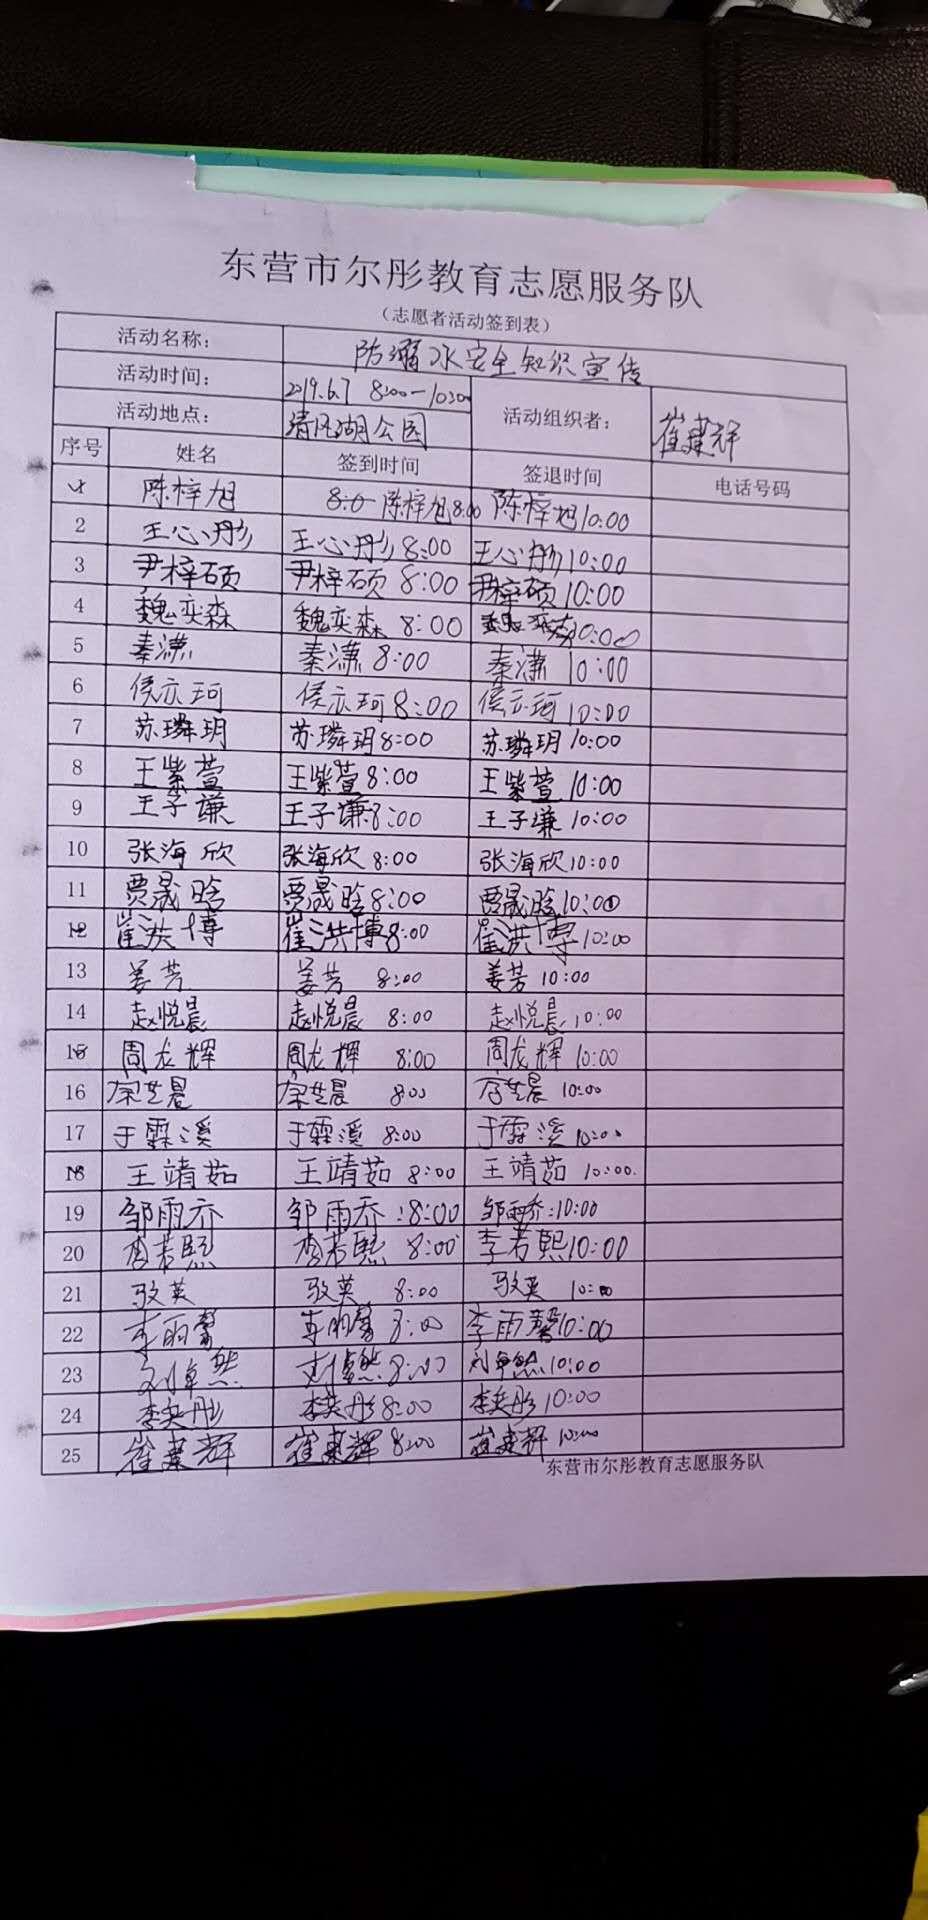 东营市尔彤教育志愿服务队
（志愿者活动签到表）
活动名称： 防溺水安全知识宣传
活动时间： 2019.6.7 8:00—10:00 活动组织者： 崔建辉
活动地点： 清风湖公园
序号 姓名 签到时间 签退时间 电话号码
1 陈梓旭 8:0 陈梓旭 8:00 陈梓旭 10:00
2 王心彤 王心彤 8:00 王心彤 10:00
3 尹梓硕 尹梓硕 8:00 尹梓硕 10:00
4 魏奕森 魏奕森 8:00 魏奕森 10:00
5 秦潇 秦潇 8:00 秦潇 10:00
6 侯亦珂 侯亦珂 8:00 侯亦珂 10:00
7 苏璘玥 苏璘玥 8:00 苏璘玥 10:00
8 王紫萱 王紫萱 8:00 王紫萱 10:00
9 王子谦 王子谦 8:00 王子谦 10:00
10 张海欣 张海欣 8:00 张海欣 10:00
11 贾晟晗 贾晟晗 8:00 贾晟晗 10:00
12 崔洪博 崔洪博 8:00 崔洪博 10:00
13 姜芳 姜芳 8:00 姜芳 10:00
14 赵悦晨 赵悦晨 8:00 赵悦晨 10:00
15 周龙辉 周龙辉 8:00 周龙辉 10:00
16 8:00 10:00
17 于霖溪 于霖溪 8:00 于霖溪 10:00
18 王靖茹 王靖茹 8:00 王靖茹 10:00.
19 邹雨乔 邹雨乔：8:00 邹雨乔：10:00
20 李若熙 李若熙 8:00 李若熙 10:00
21 8:00 10:00
22 李雨馨 李雨馨 8:00 李雨馨 10:00
23 刘倬然 刘倬然 8:00 刘卓然 10:00
24 李奕彤 李奕彤 8:00 李奕彤 10:00
25 崔建辉 崔建辉 8:00 崔建辉 10:00
东营市尔彤教育志愿服务队